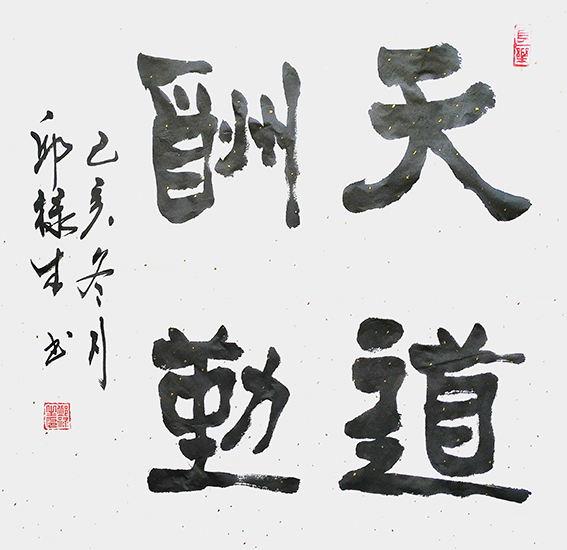 天道
酬勤
己亥冬月
邱禄生书